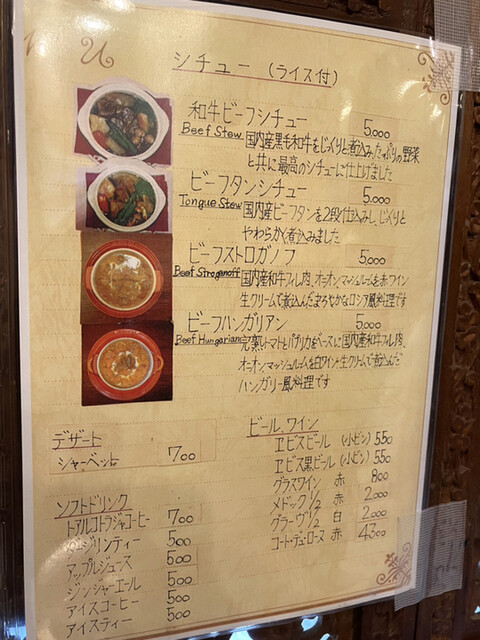 シチュー (ライス付)
和牛ビーフシチュー 5,000
Beef Stew 国内産黒毛和牛をじっくりと煮込みたっぷりの野菜
と共に最高のシチューに仕上げました
ビーフタンシチュー 5,000
Tongue Stew 国内産ビーフタンを2段仕込みし、じっくりと
やわらかく煮込みました
ビーフストロガノフ 5,000
Beef Stroganoff 国内産和牛フィレ肉、オニオンマッシュルームを赤ワイン
生クリームで煮込んだまろやかなロシア風料理です
ビーフハンガリアン 5,000
Beef Hungarian 完熟トマトとパプリカをベースに国内産和牛フィレ肉、
オニオンマッシュルームを白ワイン・生クリームで煮込んだ
ハンガリー風料理です
デザート
シャーベット 700
ソフトドリンク
トアルコトラジャコーヒー 700
ダージリンティー 500
アップルジュース 500
ジンジャーエール 500
アイスコーヒー 500
アイスティー 500
ビール、ワイン
エビスビール (小ビン) 550
エビス黒ビール (小ビン) 550
グラスワイン 赤 800
メドック1/2 赤 2,000
グラーヴ1/2 白 2,000
コート・デュ・ローヌ 赤 4300